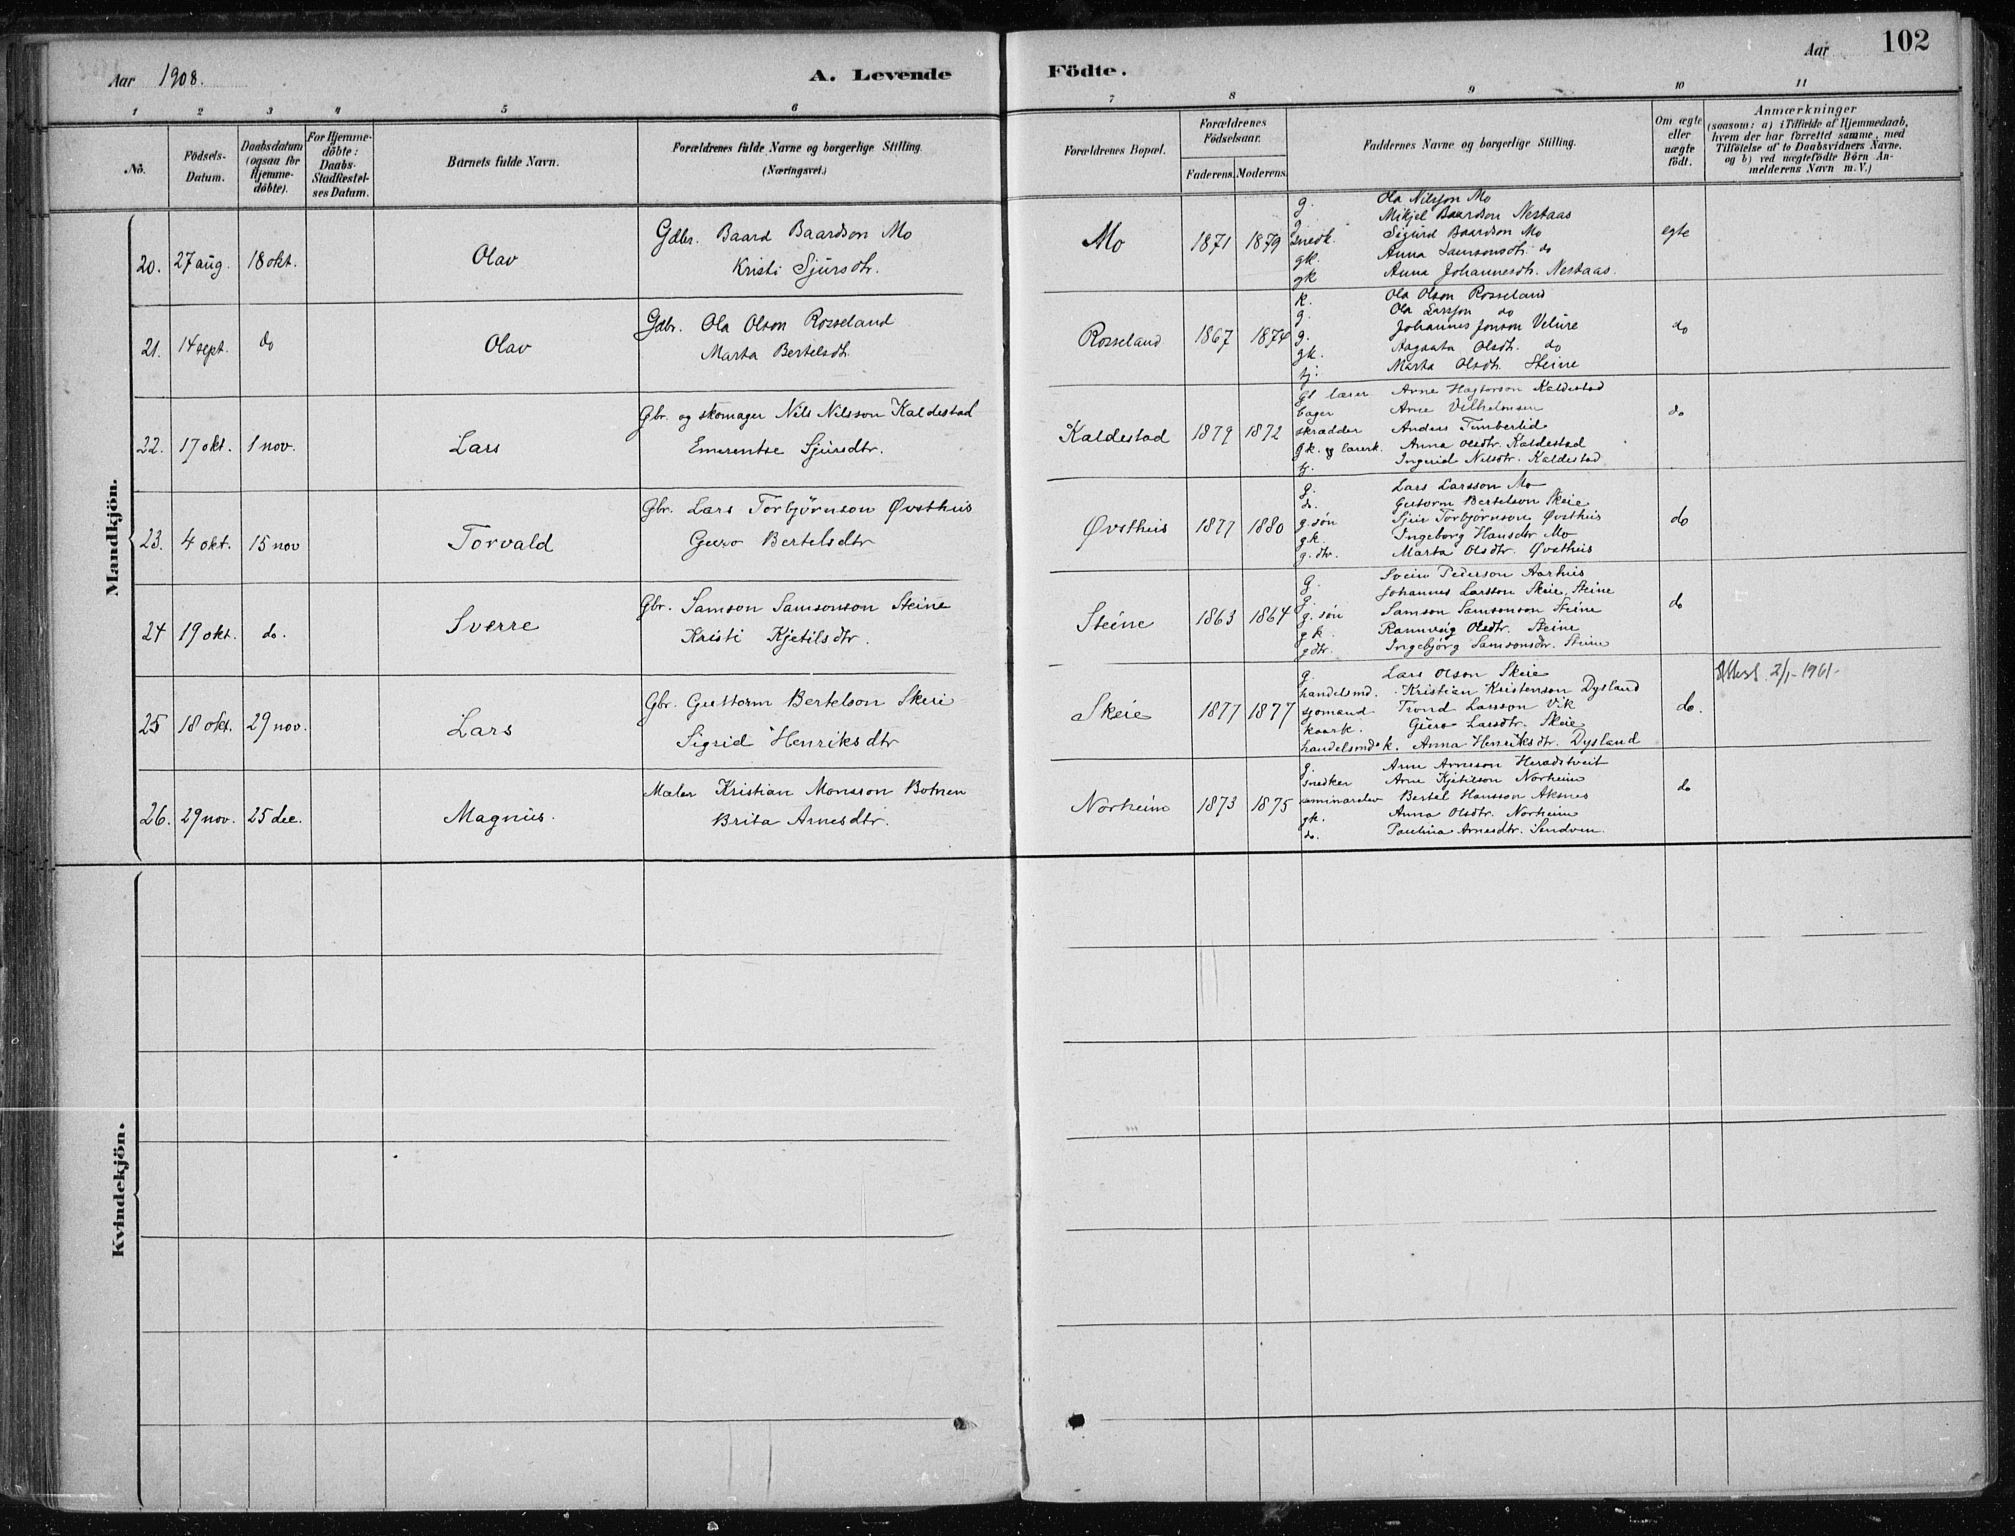 Aar 1908.
A. Levende Födte.
Aar
102
1 2 3 4 5 6 7 8 9 10 11
No.
Fødsels-Datum.
Daabsdatum (ogsaa for Hjemme-döbte).
For Hjemme-döbte: Daabs-Stadfestel-ses Datum.
Barnets fulde Navn.
Forældrenes fulde Navne og borgerlige Stilling. (Næringsvei.)
Forældrenes Bopæl.
Forældrenes Fødselsaar.
Faderens. Moderens.
Faddernes Navne og borgerlige Stilling.
Om ægte eller uægte født.
Anmærkninger
(saasom: a) i Tilfælde af Hjemmedaab, hvem der har forrettet samme, med Tilföielse af to Daabsvidners Navne, og b) ved uægtefödte Börn An-melderens Navn m. V.)
Mandkjön.
20. 27 aug. 18 okt. Olav
Gdbr. Baard Baardson Mo
Kristi Sjursdtr.
Mo 1871 1879
g. Ola Nilsson Mo
g. Mikjel Baardson Nestaas
snedk. Sigurd Baardson Mo
gk. Anna Samsonsdtr. do
gk Anna Johannesdtr. Nestaas.
egte
21. 14 sept. do Olav
Gdbr. Ola Olson Rosseland
Marta Bertelsdtr.
Rosseland 1867 1874
k. Ola Olson Rosseland
g. Ola Larsson do
g. Johannes Jonson Velure
gk. Aagaata Olsdtr. do
tj. Marta Olsdtr. Steine
do
22. 17 okt. 1 nov. Lars
Gbr. og skomager Nils Nilsson Kaldestad
Emerentse Sjursdtr.
Kaldestad 1879 1872
gl lærer Arne Hagtorson Kaldestad
bager Arne Vilhelmsen
skrædder Anders Timberlid
gk. og lærerk. Anna Olsdtr. Kaldestad
tj. Ingerid Nilsdtr. Kaldestad
do
23. 4 okt. 15 nov Torvald
Gbr. Lars Torbjørnson Øvsthus
Guro Bertelsdtr
Øvsthus 1877 1880
g. Lars Larsson Mo
do. Guttorm Bertelson Skeie
g. søn Sjur Torbjørnson Øvsthus
gk. Ingeborg Hansdtr Mo
g. dtr. Marta Olsdtr. Øvsthus
do
24 19 okt. do. Sverre
Gbr. Samson Samsonson Steine
Kristi Kjetilsdtr.
Steine 1863 1864
g. Svein Pederson Aarhus
g. Johannes Larsson Skeie, Steine
g. søn Samson Samsonson Steine
gk. Rannveig Olsdtr. Steine
gdtr. Ingebjørg Samsonsdtr. Steine
do
25 18 okt. 29 nov. Lars
Gbr. Guttorm Bertelson Skeie
Sigrid Henriksdtr
Skeie 1877 1877
g. Lars Olson Skeie
handelsmd. Kristian Kristenson Dysland
sjømand Trond Larsson Vik
kaark. Guro Larsdtr. Skeie
handelsmdsk. Anna Henriksdtr. Dysland
do.
Attest. 2/1-1961.
26. 29 nov. 25 dec. Magnus.
Maler Kristian Monsson Botnen
Brita Arnesdtr.
Norheim 1873 1875
g. Arne Arneson Heradstveit
snedker Arne Kjetilson Norheim
seminarelev Bertel Hansson Aksnes
gk. Anna Olsdtr. Norheim
do. Paulina Arnesdtr. Sandven.
do
Kvindekjön.